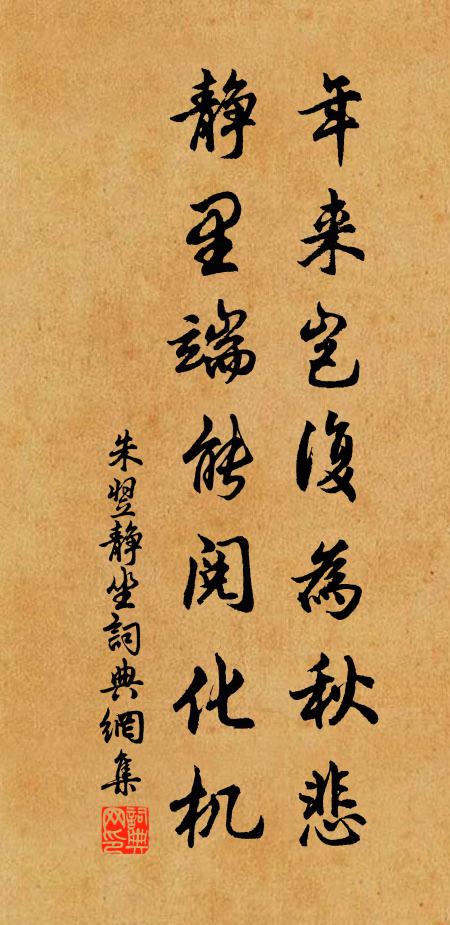 年来岂復為秋悲
静里端能閲化机
朱翌静坐詞典網集
詞典网印